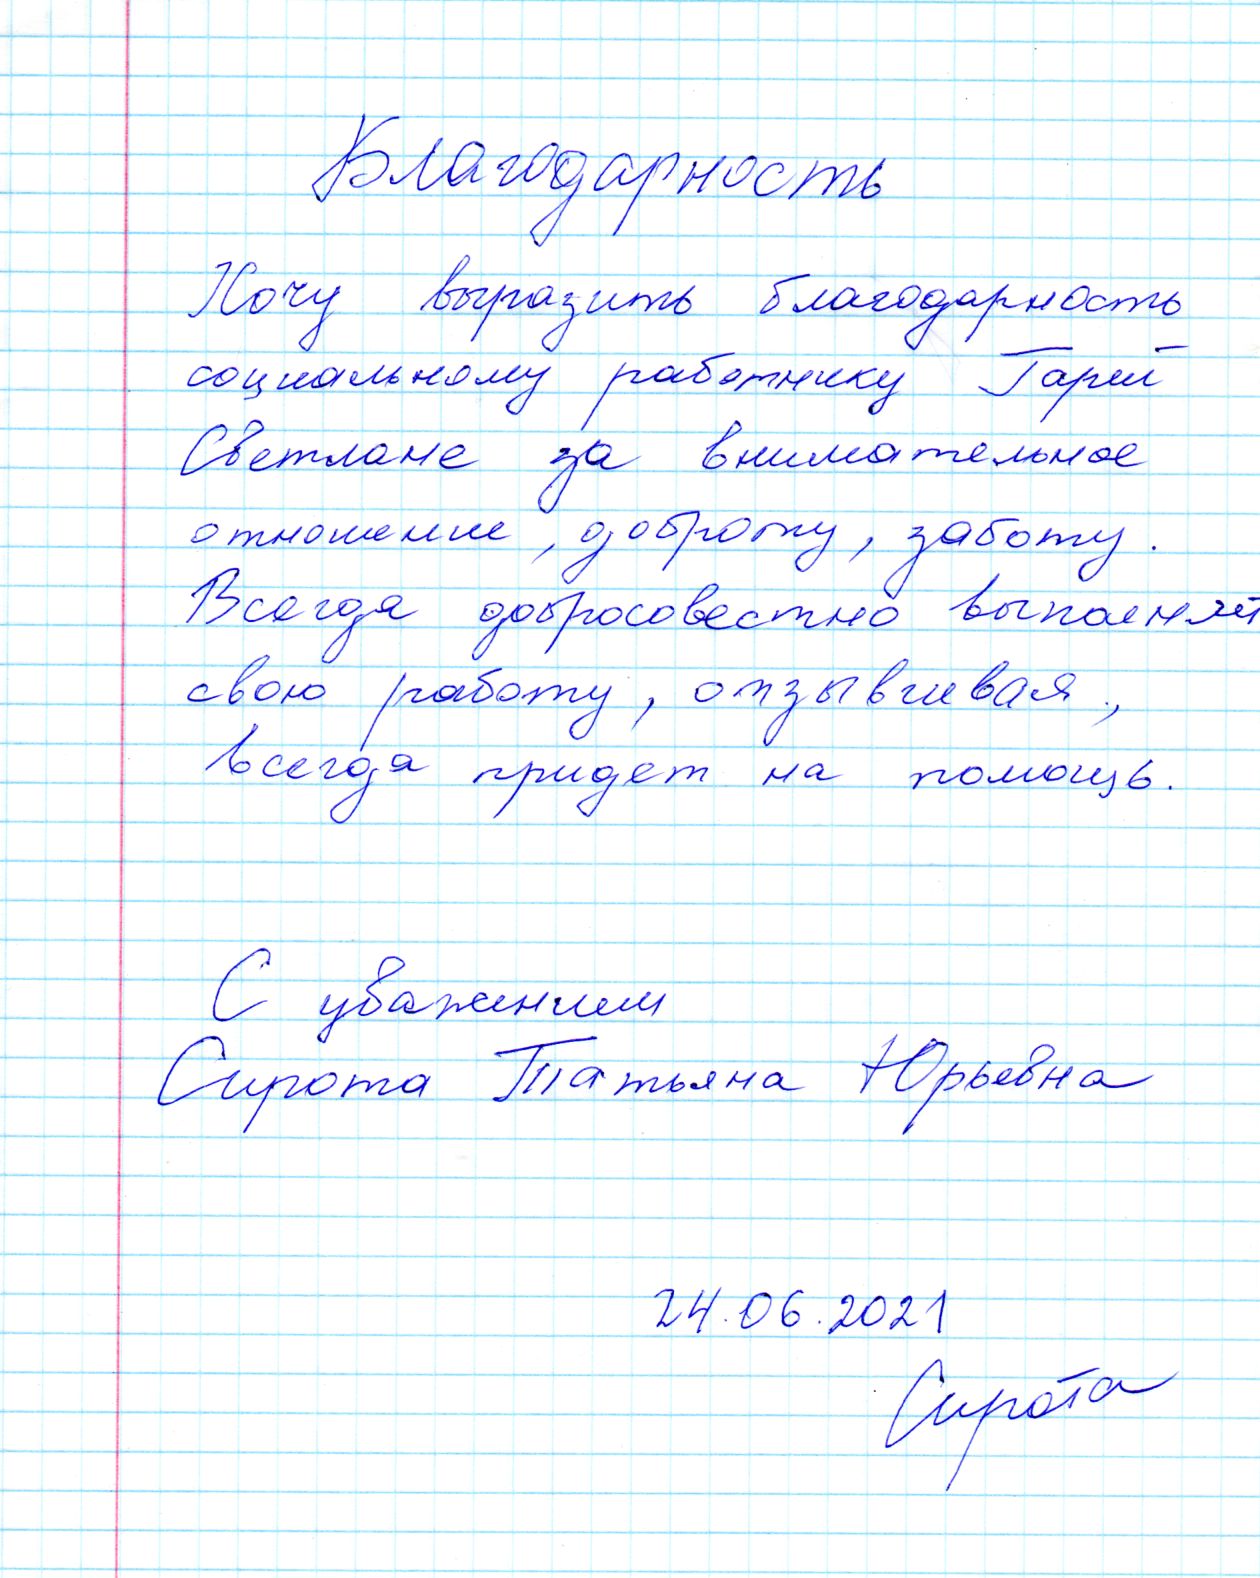 Благодарность
Хочу выразить благодарность
социальному работнику Гарей
Светлане за внимательное
отношение, доброту, заботу.
Всегда добросовестно выполняет
свою работу, отзывчивая,
всегда придет на помощь.
С уважением
Сирота Татьяна Юрьевна
24.06.2021
Сирота